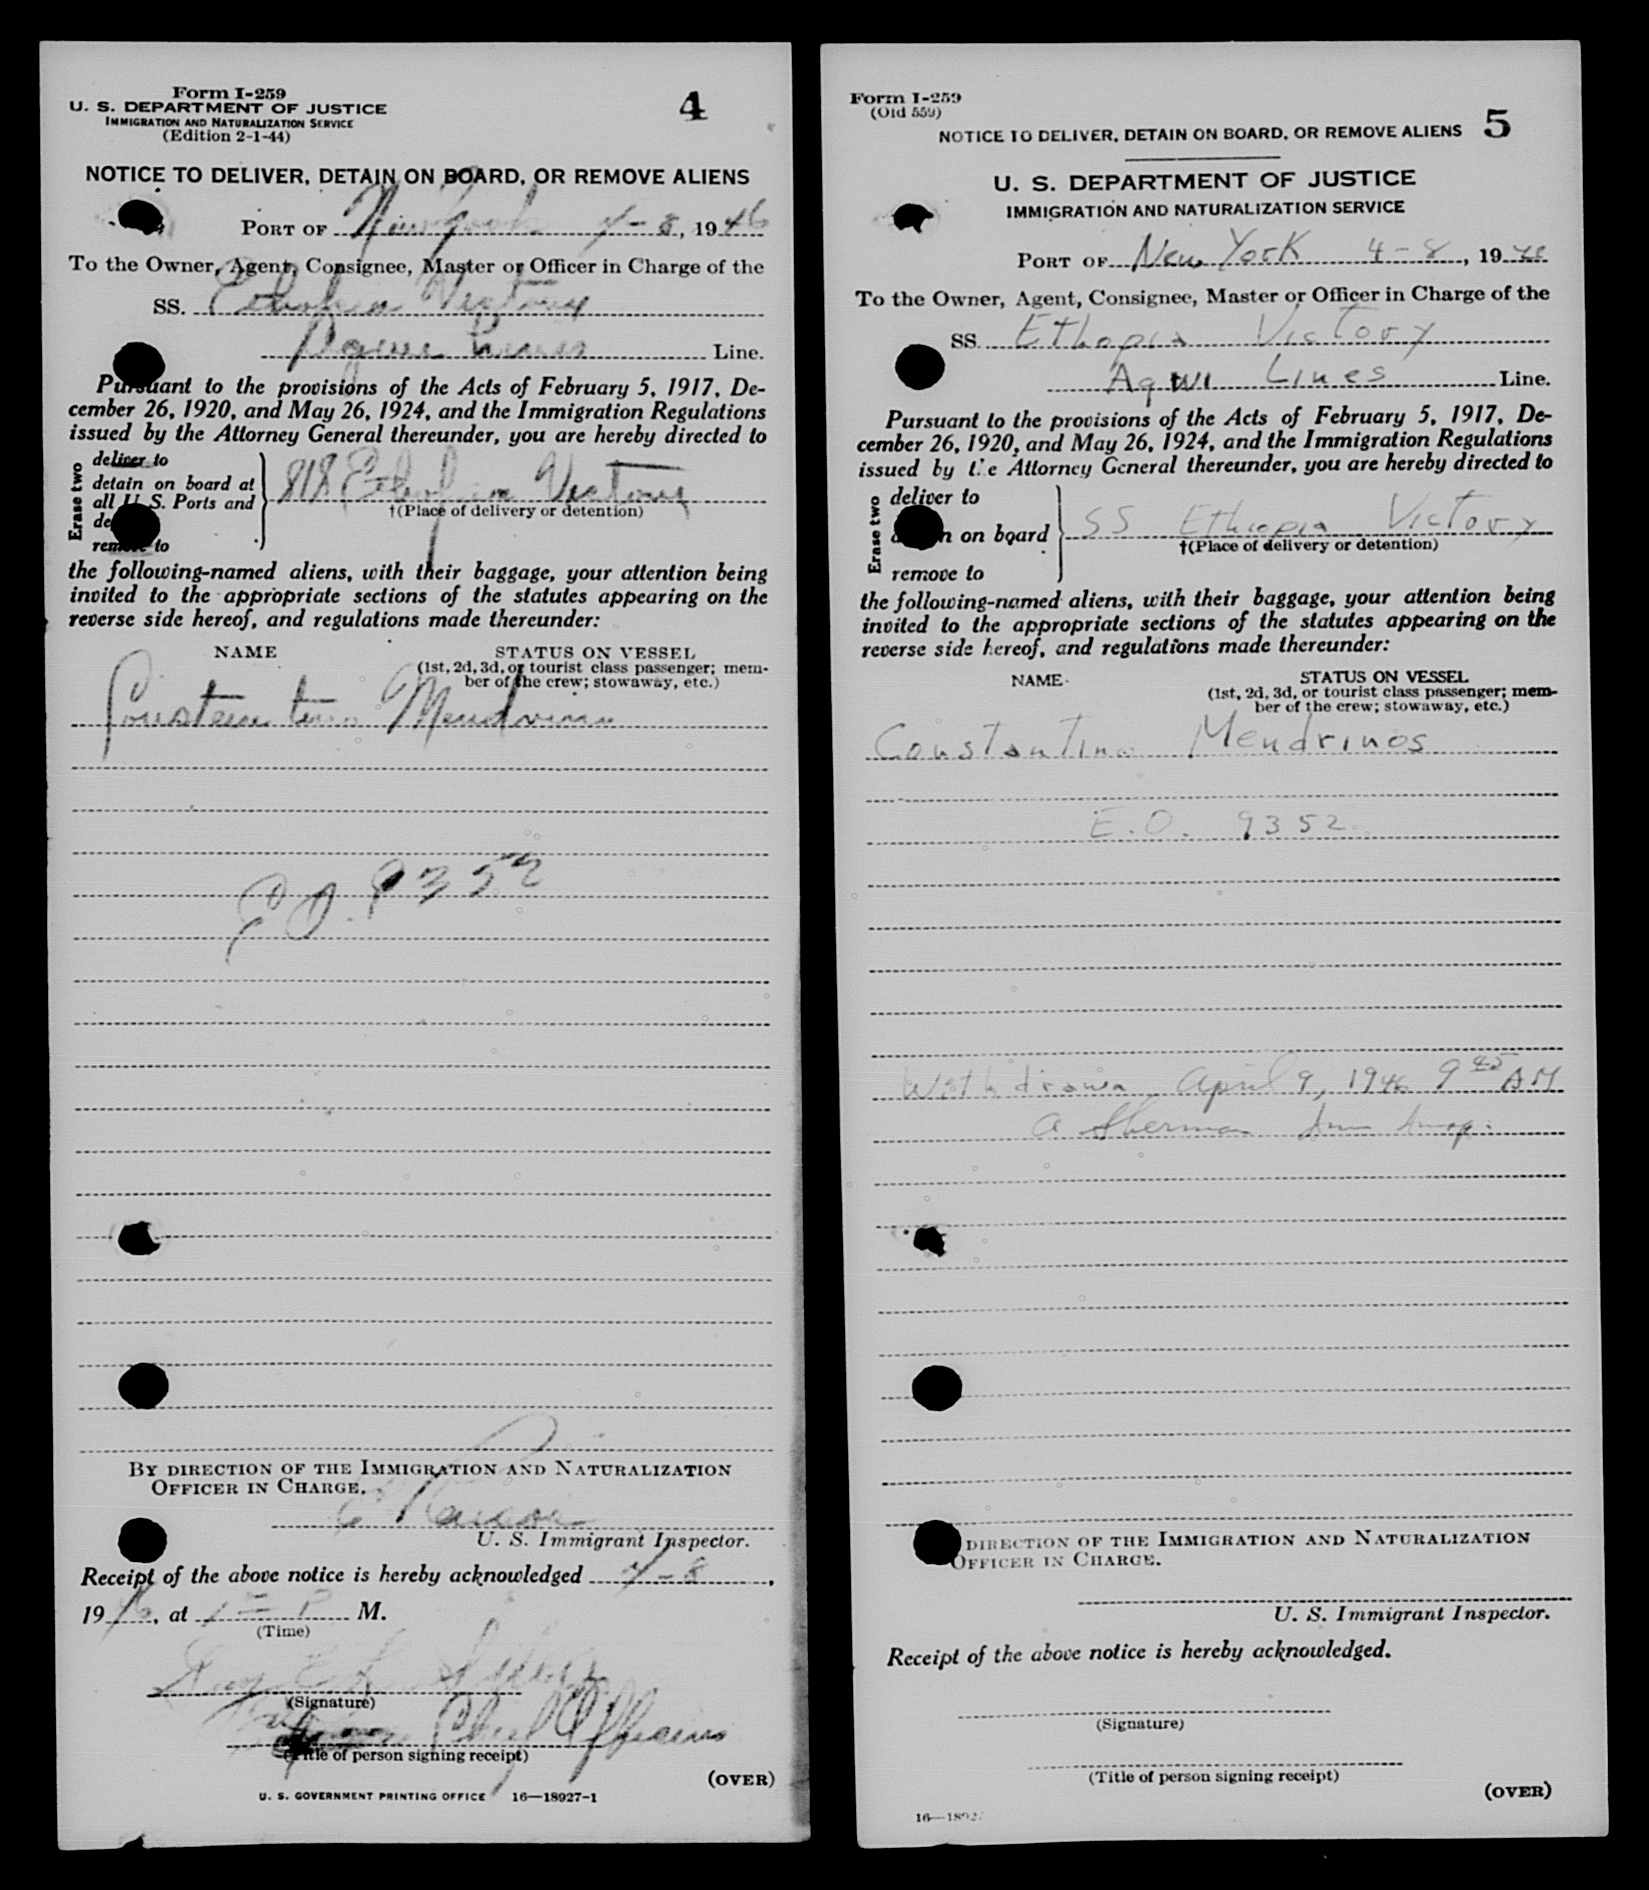 Form I-259
U. S. DEPARTMENT OF JUSTICE
IMMIGRATION AND NATURALIZATION SERVICE
(Edition 2-1-44)
4
NOTICE TO DELIVER, DETAIN ON BOARD, OR REMOVE ALIENS
PORT OF New York 4-8, 1946
To the Owner, Agent, Consignee, Master or Officer in Charge of the
SS. Ethopia Victory
Lines Line.
Pursuant to the provisions of the Acts of February 5, 1917, De-
cember 26, 1920, and May 26, 1924, and the Immigration Regulations
issued by the Attorney General thereunder, you are hereby directed to
Erase two
deliver to
detain on board at
all U. S. Ports and
de
remove to
Ethopia Victory
†(Place of delivery or detention)
the following-named aliens, with their baggage, your attention being
invited to the appropriate sections of the statutes appearing on the
reverse side hereof, and regulations made thereunder:
NAME
STATUS ON VESSEL
(1st, 2d, 3d, or tourist class passenger; mem-
ber of the crew; stowaway, etc.)
Constantino Mendrino
E.O. 9352
BY DIRECTION OF THE IMMIGRATION AND NATURALIZATION
OFFICER IN CHARGE.
U. S. Immigrant Inspector.
Receipt of the above notice is hereby acknowledged 4-8,
1946, at 1 P M.
(Time)
(Signature)
Chief Officer
(Title of person signing receipt)
(OVER)
U. S. GOVERNMENT PRINTING OFFICE 16—18927-1
Form I-259
(Old 559)
NOTICE TO DELIVER, DETAIN ON BOARD, OR REMOVE ALIENS
5
U. S. DEPARTMENT OF JUSTICE
IMMIGRATION AND NATURALIZATION SERVICE
PORT OF New York 4-8, 1946
To the Owner, Agent, Consignee, Master or Officer in Charge of the
SS. Ethopia Victory
Agwi Lines Line.
Pursuant to the provisions of the Acts of February 5, 1917, De-
cember 26, 1920, and May 26, 1924, and the Immigration Regulations
issued by the Attorney General thereunder, you are hereby directed to
Erase two
deliver to
on board
remove to
SS Ethiopia Victory
†(Place of delivery or detention)
the following-named aliens, with their baggage, your attention being
invited to the appropriate sections of the statutes appearing on the
reverse side hereof, and regulations made thereunder:
NAME
STATUS ON VESSEL
(1st, 2d, 3d, or tourist class passenger; mem-
ber of the crew; stowaway, etc.)
Constantino Mendrinos
E.O. 9352
Withdrawn April 9, 1946 9 45 AM
A Sherman Imm Insp.
DIRECTION OF THE IMMIGRATION AND NATURALIZATION
OFFICER IN CHARGE.
U. S. Immigrant Inspector.
Receipt of the above notice is hereby acknowledged.
(Signature)
(Title of person signing receipt)
(OVER)
16—1892